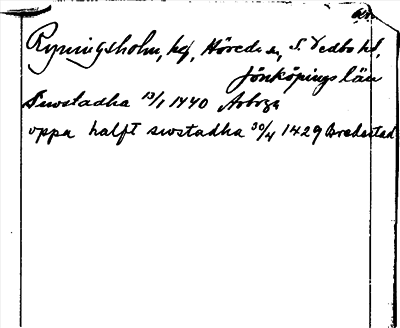 Ryningsholm, hg, Höreda sn, S. Vedbo hd,
Jönköpings län
Swostadha 13/1 1440 Arboga
uppa halft swstadha 30/4 1429 Bredestad